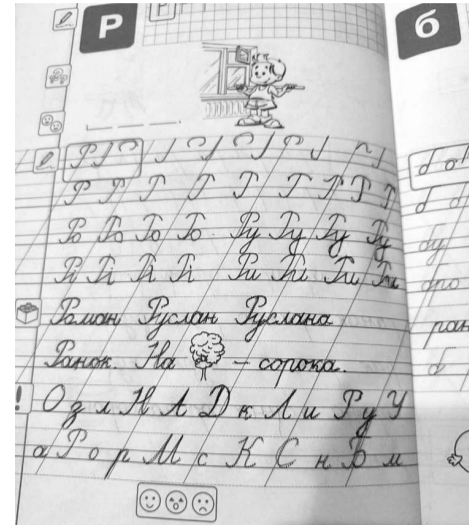 Р
б
Р Р Р Р Р Р Р Р Р
Ро Ро Ро Ро Ру Ру Ру Ру
Рі Рі Рі Рі Ри Ри Ри Ри
Роман Руслан Руслана
Ранок. На – сорока.
! О з л Н А Д к Л и Р у У
а Р о р М с К С н В м